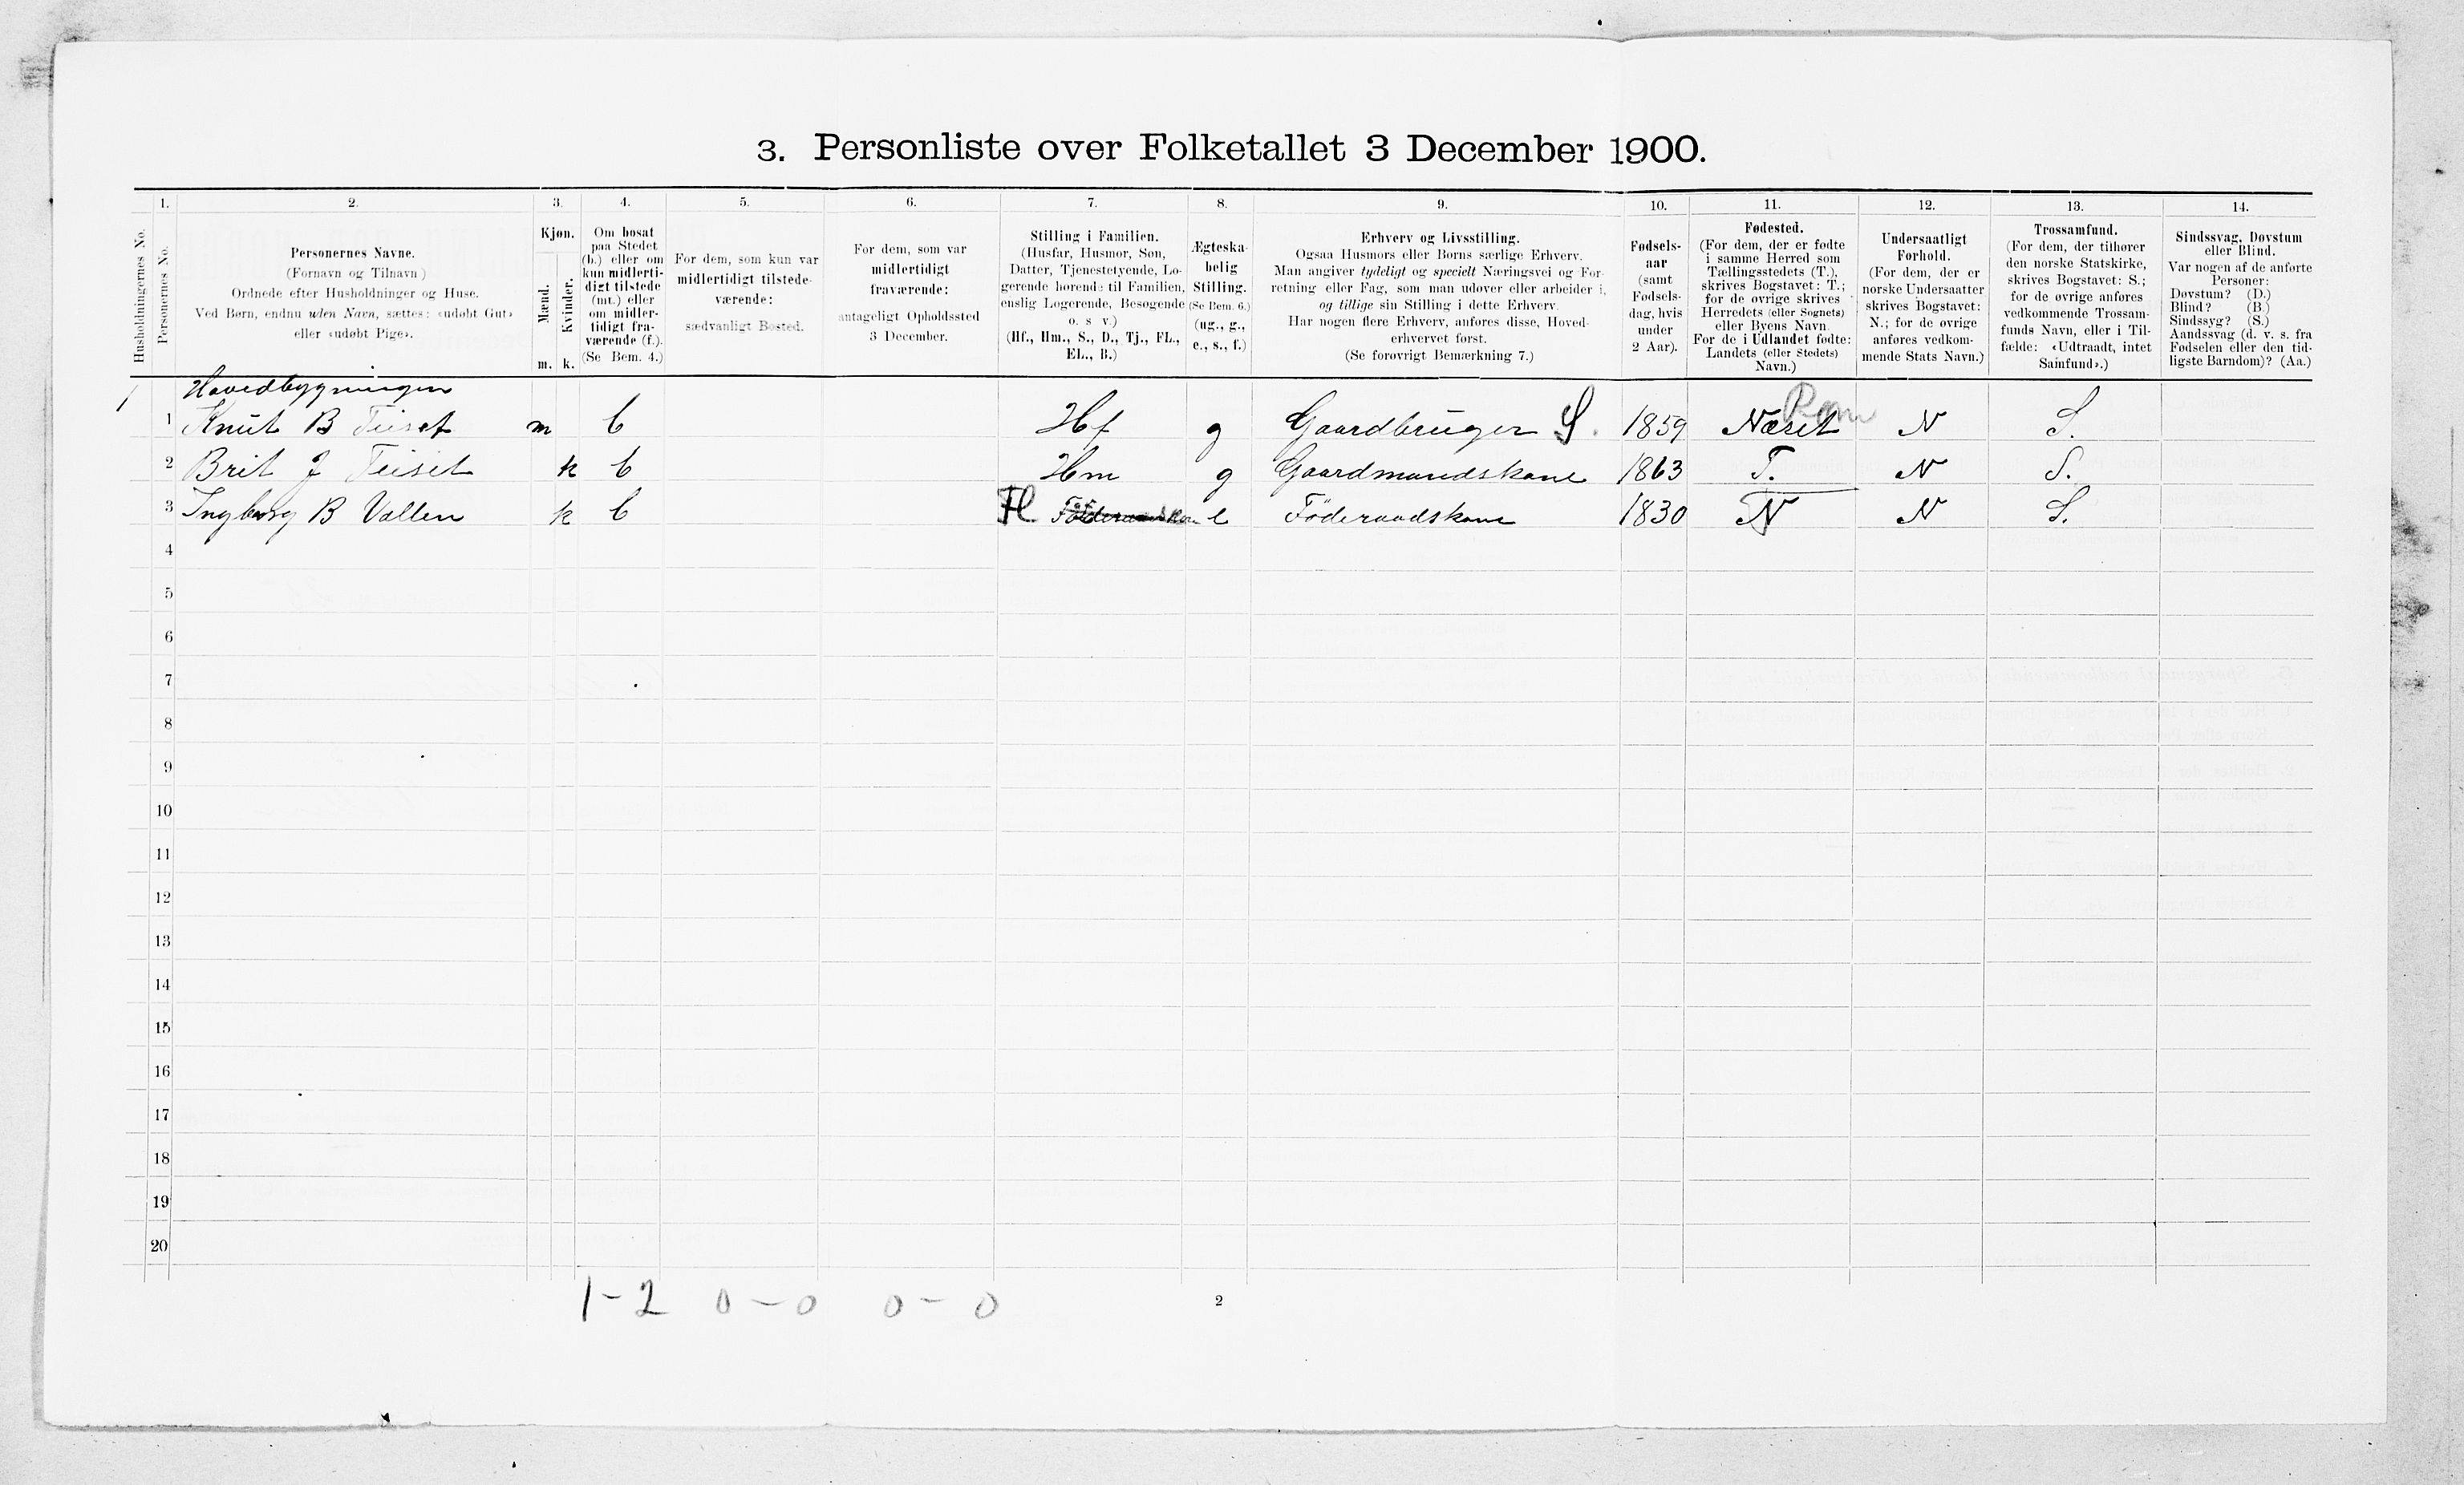 3. Personliste over Folketallet 3 December 1900.
Husholdningernes No.
1. Personernes No.
2. Personernes Navne.
(Fornavn og Tilnavn)
Ordnede efter Husholdninger og Huse.
Ved Børn, endnu uden Navn, sættes: «udøbt Gut»
eller «udøbt Pige».
3. Kjøn.
Mænd. Kvinder.
m. k.
4. Om bosat
paa Stedet
(b.) eller om
kun midlerti-
digt tilstede
(mt.) eller
om midler-
tidigt fra-
værende (f.).
(Se Bem. 4.)
5. For dem, som kun var
midlertidigt tilstede-
værende:
sædvanligt Bosted.
6. For dem, som var
midlertidigt
fraværende:
antageligt Opholdssted
3 December.
7. Stilling i Familien.
(Husfar, Husmor, Søn,
Datter, Tjenestetyende, Lo-
gerende hørende til Familien,
enslig Logerende, Besøgende
o. s v.)
(Hf., Hm., S., D., Tj., FL.,
EL., B.)
8. Ægteska-
belig
Stilling.
(Se Bem. 6.)
(ug., g.,
e., s., f.)
9. Erhverv og Livsstilling.
Ogsaa Husmors eller Børns særlige Erhverv.
Man angiver tydeligt og specielt Næringsvei og For-
retning eller Fag, som man udøver eller arbeider i,
og tillige sin Stilling i dette Erhverv.
Har nogen flere Erhverv, anføres disse, Hoved-
erhvervet først.
(Se forøvrigt Bemærkning 7.)
10. Fødsels-
aar
(samt
Fødsels-
dag, hvis
under
2 Aar).
11. Fødested.
(For dem, der er fødte
i samme Herred som
Tællingsstedets (T.),
skrives Bogstavet: T.;
for de øvrige skrives
Herredets (eller Sognets)
eller Byens Navn.
For de i Udlandet fødte:
Landets (eller Stedets)
Navn.)
12. Undersaatligt
Forhold.
(For dem, der er
norske Undersaatter
skrives Bogstavet:
N.; for de øvrige
anføres vedkom-
mende Stats Navn.)
13. Trossamfund.
(For dem, der tilhører
den norske Statskirke,
skrives Bogstavet: S.;
for de øvrige anføres
vedkommende Trossam-
funds Navn, eller i Til-
fælde: «Udtraadt, intet
Samfund».)
14. Sindssvag, Døvstum
eller Blind.
Var nogen af de anførte
Personer:
Døvstum? (D.)
Blind? (B.)
Sindssyg? (S.)
Aandssvag (d. v. s. fra
Fødselen eller den tid-
ligste Barndom)? (Aa.)
Hovedbygningen
1 1 Knut B Teiset m b Hf g Gaardbruger S. 1859 Næset Rom N S.
2 Brit J Teiset k b Hm g Gaardmandskone 1863 T. N S.
3 Ingeborg B Vallen k b Fl e Føderaadskone 1830 N N S.
4
5
6
7
8
9
10
11
12
13
14
15
16
17
18
19
20
1-2 0-0 0-0
2